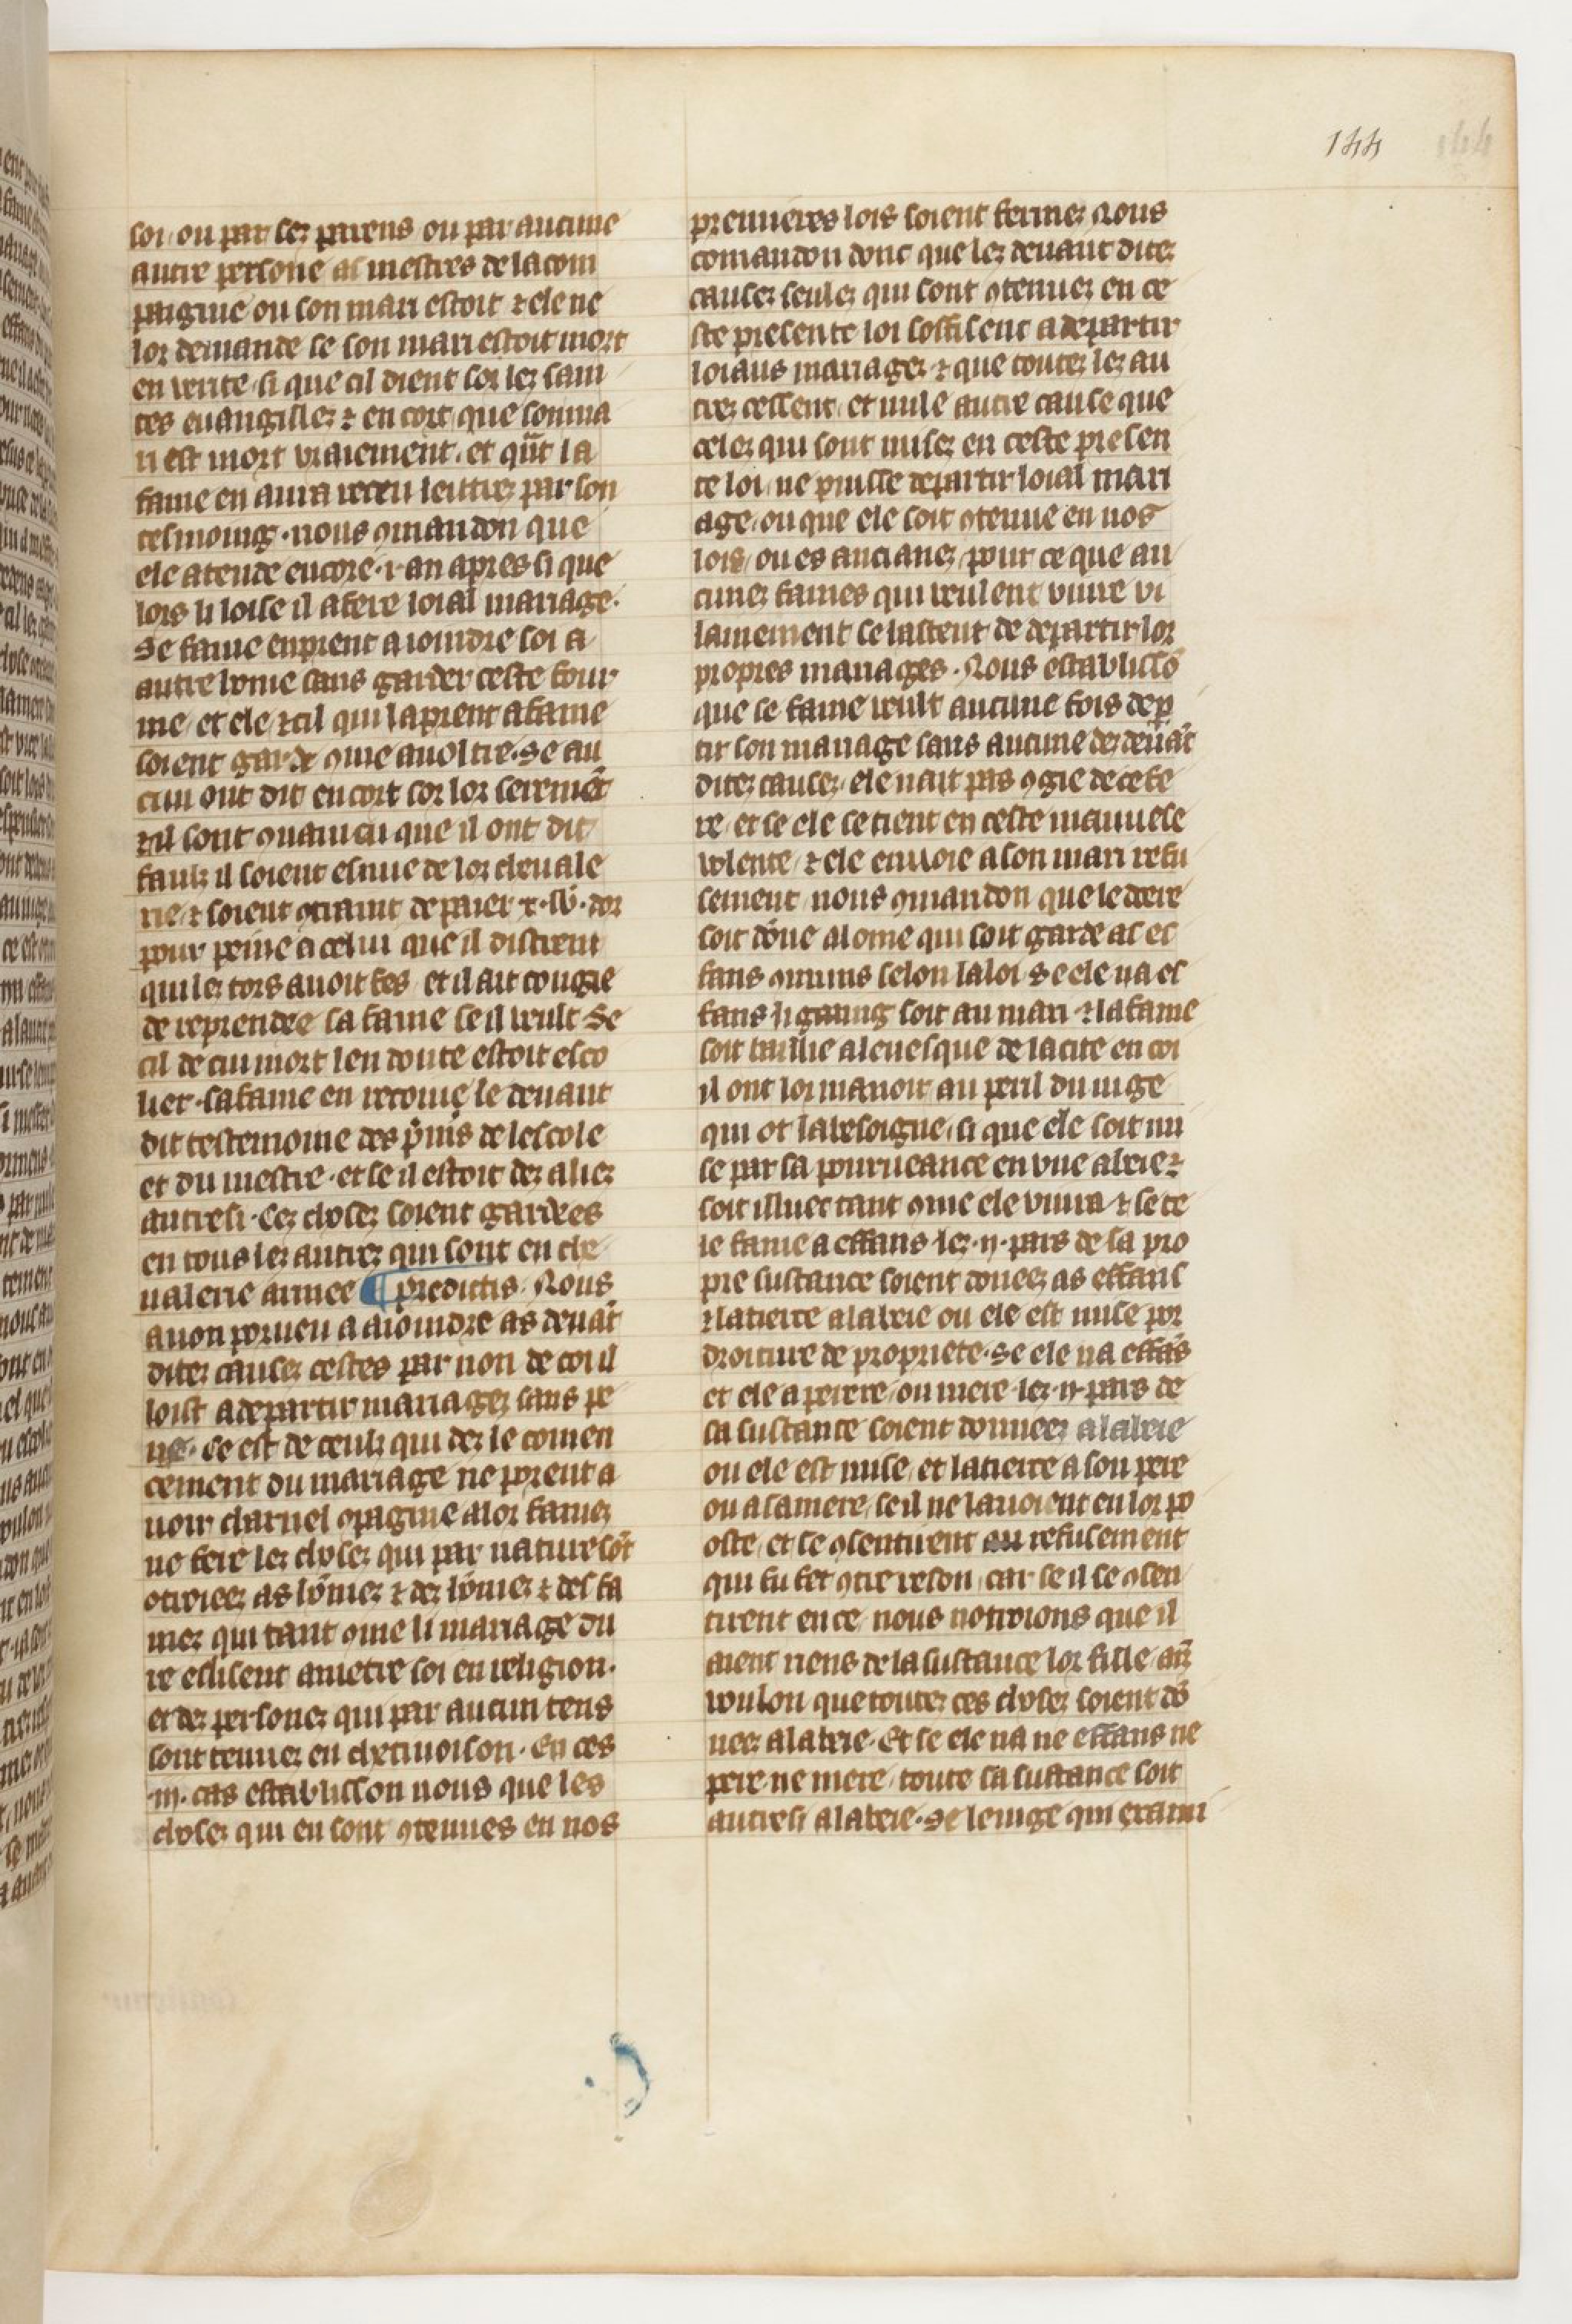 144
soi ou par ses parens ou par aucune
autre persone as mestres de la com
paignie ou son mari estoit ⁊ ele ne
lor demande se son mari estoit mort
en verite si que cil dient sor les sain
tes euangilles ⁊ en cort que son ma
ri est mort vraiement et qn̄t la
fame en aura receu lettres par son
tesmoing nous ꝯmandon que
ele atende encore .i. an apres si que
lors li loise il a fere loial mariage.
Se fame enprent a ioindre soi a
autre home sans garder ceste four
me et ele ⁊ cil qui la prent a fame
soient garde ꝯme auoltre. Se au
cun ont dit en cort sor lor seremēt
⁊ il sont ꝯuaincu que il ont dit
faulz il soient esmue de lor cheuale
rie ⁊ soient ꝯtraint de paier x. lb̄. dor
pour peine a celui que il distrent
qui les tors auoit fes et il ait congie
de reprendre sa fame se il veult Se
cil de cui mort len doute estoit esco
lier sa fame en recoiue le deuant
dit testemoine des p̄mis de lescole
et du mestre. et se il estoit des aliez
autresi. Ces choses soient gardees
en tous les autres qui sont en che
ualerie armee ¶ predictis. Nous
auon porueu a aioindre as deuāt
dites causes cestes par non de coi il
loist a departir mariages sans pe
ne. Ce est de ceulz qui des le comen
cement du mariage ne porent a
uoir charnel ꝯpagnie a lor fames
ne fere les choses qui par nature sōt
otroiees as hōmes ⁊ des hōmes ⁊ des fa
mes qui tant ꝯme li mariage du
re eslisent a metre soi en religion.
et des persones qui par aucun tens
sont tenues en chetiuoison. En ces
.iij. cas establisson nous que les
choses qui en sont ꝯtenues en nos
premieres lois soient fermes Nous
comandon donc que les deuant dites
causes seules qui sont ꝯtenues en ce
ste presente loi soffisent a departir
loiaus mariages ⁊ que toutes les au
tres cessent et nule autre cause que
celes qui sont mises en ceste presen
te loi ne puisse departir loial mari
age ou que ele soit ꝯtenue en nos
lois ou es ancianes pour ce que au
cunes fames qui veulent viure vi
lainement se hastent de departir lor
propres mariages. Nous establissō
que se fame veult aucune fois dep̱
tir son mariage sans aucune des deuāt
dites causes ele nait pas ꝯgie de ce fe
re et se ele se tient en ceste mauuese
volente ⁊ ele enuoie a son mari refu
sement nous ꝯmandon que le doere
soit dōne a lome qui soit garde as es
fans ꝯmuns selon la loi. Se ele na es
fans li gaaing soit au mari ⁊ la fame
soit baillie a leuesque de la cite en coi
il ont lor manoir au peril du iuge
qui ot la besoigne si que ele soit mi
se par sa pourueance en vne abeie ⁊
soit illuec tant ꝯme ele viura ⁊ se te
le fame a effans les .ij. pars de sa pro
pre sustance soient donees as effans
⁊ la tierce a labeie ou ele est mise por
droiture de propriete. Se ele na effās
et ele a pere re ou mere les .ij. pars de
sa sustance soient donnees a labeie
ou ele est mise et la tierce a son pere
ou a sa mere se il ne lauoient en lor po
oste et se ꝯsentirent au refusement
qui fu fet ꝯtre reson car se il se ꝯsen
tirent en ce nous notroions que il
aient riens de la sustance lor fille aīz
voulon que toutes ces choses soient dō
nees a labeie. Et se ele na ne effans ne
pere ne mere toute sa sustance soit
autresi a labeie. Se le iuge qui exami